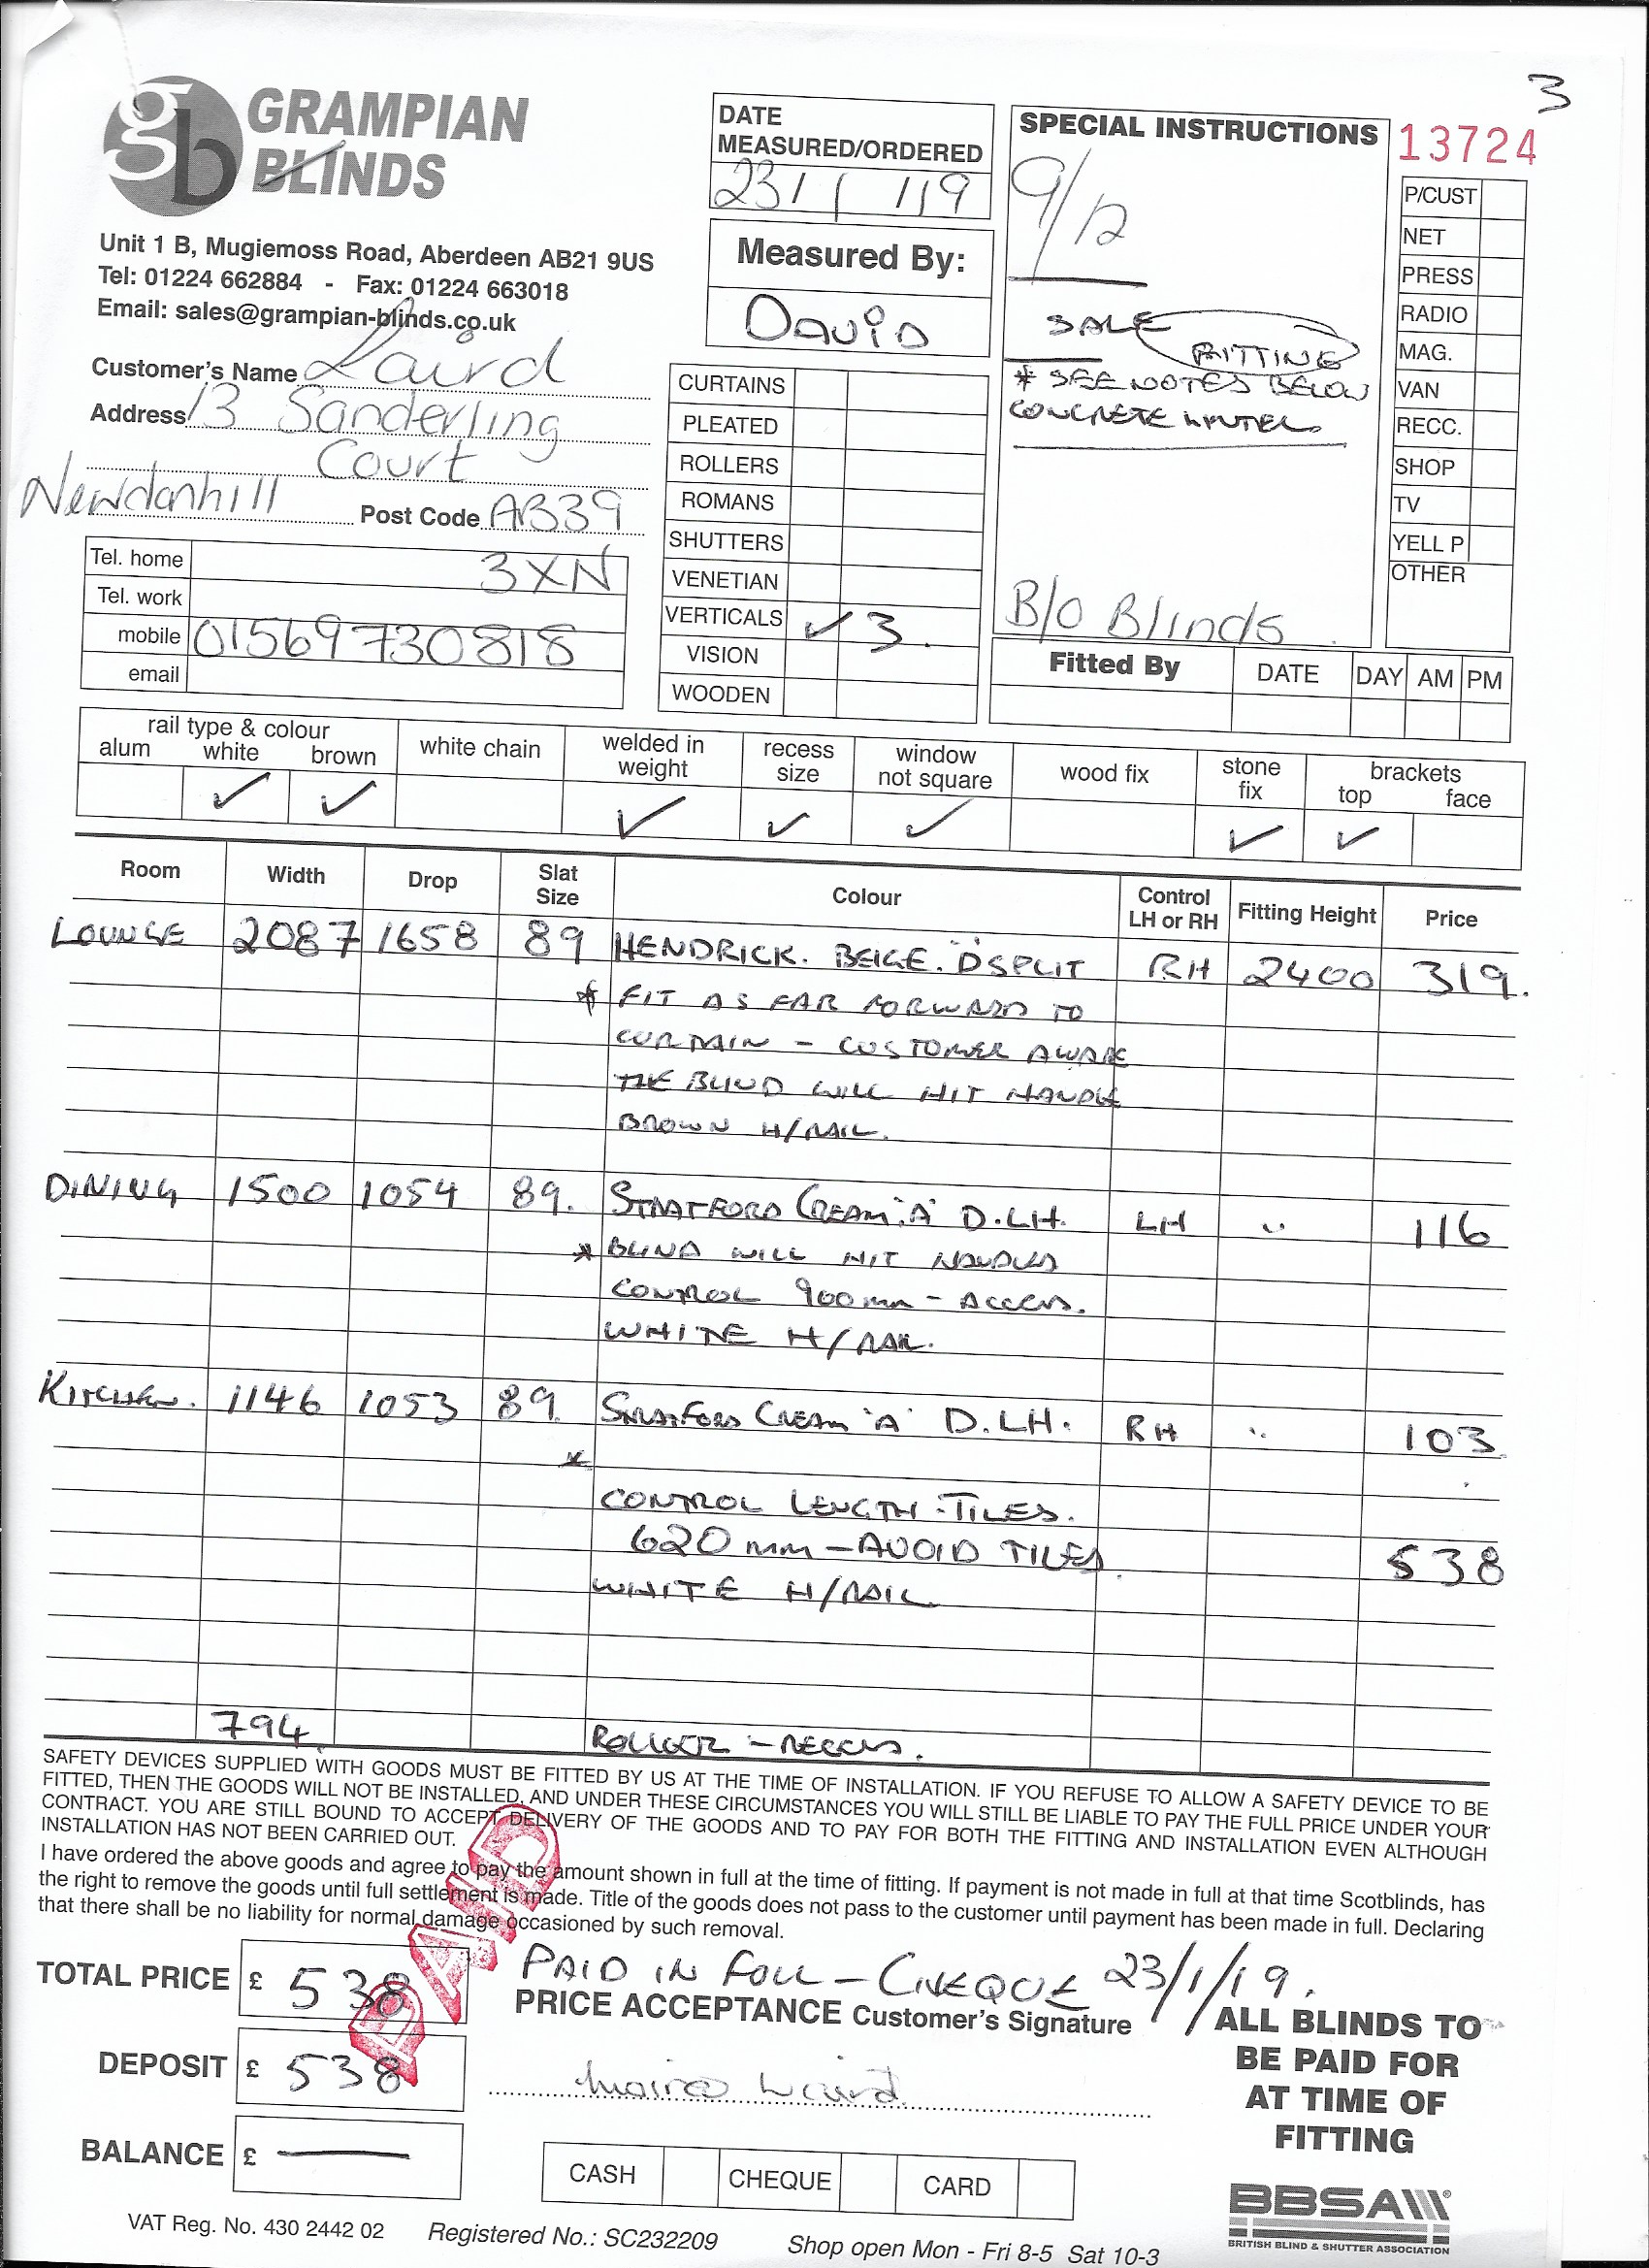 3
GRAMPIAN
BLINDS
gb
Unit 1 B, Mugiemoss Road, Aberdeen AB21 9US
Tel: 01224 662884 - Fax: 01224 663018
Email: sales@grampian-blinds.co.uk
Customer's Name Laird
Address 13 Sanderling
Court
Newtonhill Post Code AB39
Tel. home 3XN
Tel. work
mobile 01569730818
email
DATE
MEASURED/ORDERED
23/1/19
Measured By:
DAVID
CURTAINS
PLEATED
ROLLERS
ROMANS
SHUTTERS
VENETIAN
VERTICALS ✓ 3.
VISION
WOODEN
SPECIAL INSTRUCTIONS
9/12
SALE
FITTING
* SEE NOTES BELOW
CONCRETE LINTEL
B/O Blinds
13724
P/CUST
NET
PRESS
RADIO
MAG.
VAN
RECC.
SHOP
TV
YELL P
OTHER
Fitted By DATE DAY AM PM
rail type & colour
alum white ✓ brown ✓
white chain
welded in weight ✓
recess size ✓
window not square ✓
wood fix
stone fix ✓
brackets
top ✓ face
Room Width Drop Slat Size Colour Control LH or RH Fitting Height Price
LOUNGE 2087 1658 89 HENDRICK. BEIGE. "D" SPLIT RH 2400 319.
* FIT AS FAR FORWARD TO
CURTAIN - CUSTOMER AWARE
THE BLIND WILL HIT HANDLE
BROWN H/RAIL.
DINING 1500 1054 89. STRATFORD CREAM "A" D.LH. LH " 116
* BLIND WILL HIT HANDLES
CONTROL 900mm - ACCESS.
WHITE H/RAIL.
KITCHEN. 1146 1053 89. STRATFORD CREAM "A" D.LH. RH " 103
*
CONTROL LENGTH - TILES.
620 mm - AVOID TILES. 538
WHITE H/RAIL
794. ROLLER - RECESS.
SAFETY DEVICES SUPPLIED WITH GOODS MUST BE FITTED BY US AT THE TIME OF INSTALLATION. IF YOU REFUSE TO ALLOW A SAFETY DEVICE TO BE
FITTED, THEN THE GOODS WILL NOT BE INSTALLED, AND UNDER THESE CIRCUMSTANCES YOU WILL STILL BE LIABLE TO PAY THE FULL PRICE UNDER YOUR
CONTRACT. YOU ARE STILL BOUND TO ACCEPT DELIVERY OF THE GOODS AND TO PAY FOR BOTH THE FITTING AND INSTALLATION EVEN ALTHOUGH
INSTALLATION HAS NOT BEEN CARRIED OUT.
I have ordered the above goods and agree to pay the amount shown in full at the time of fitting. If payment is not made in full at that time Scotblinds, has
the right to remove the goods until full settlement is made. Title of the goods does not pass to the customer until payment has been made in full. Declaring
that there shall be no liability for normal damage occasioned by such removal.
PAID
TOTAL PRICE £ 538
PAID IN FULL - CHEQUE 23/1/19.
PRICE ACCEPTANCE Customer's Signature
DEPOSIT £ 538
Moira Laird
BALANCE £ —
CASH CHEQUE CARD
ALL BLINDS TO
BE PAID FOR
AT TIME OF
FITTING
BBSA
BRITISH BLIND & SHUTTER ASSOCIATION
VAT Reg. No. 430 2442 02 Registered No.: SC232209 Shop open Mon - Fri 8-5 Sat 10-3